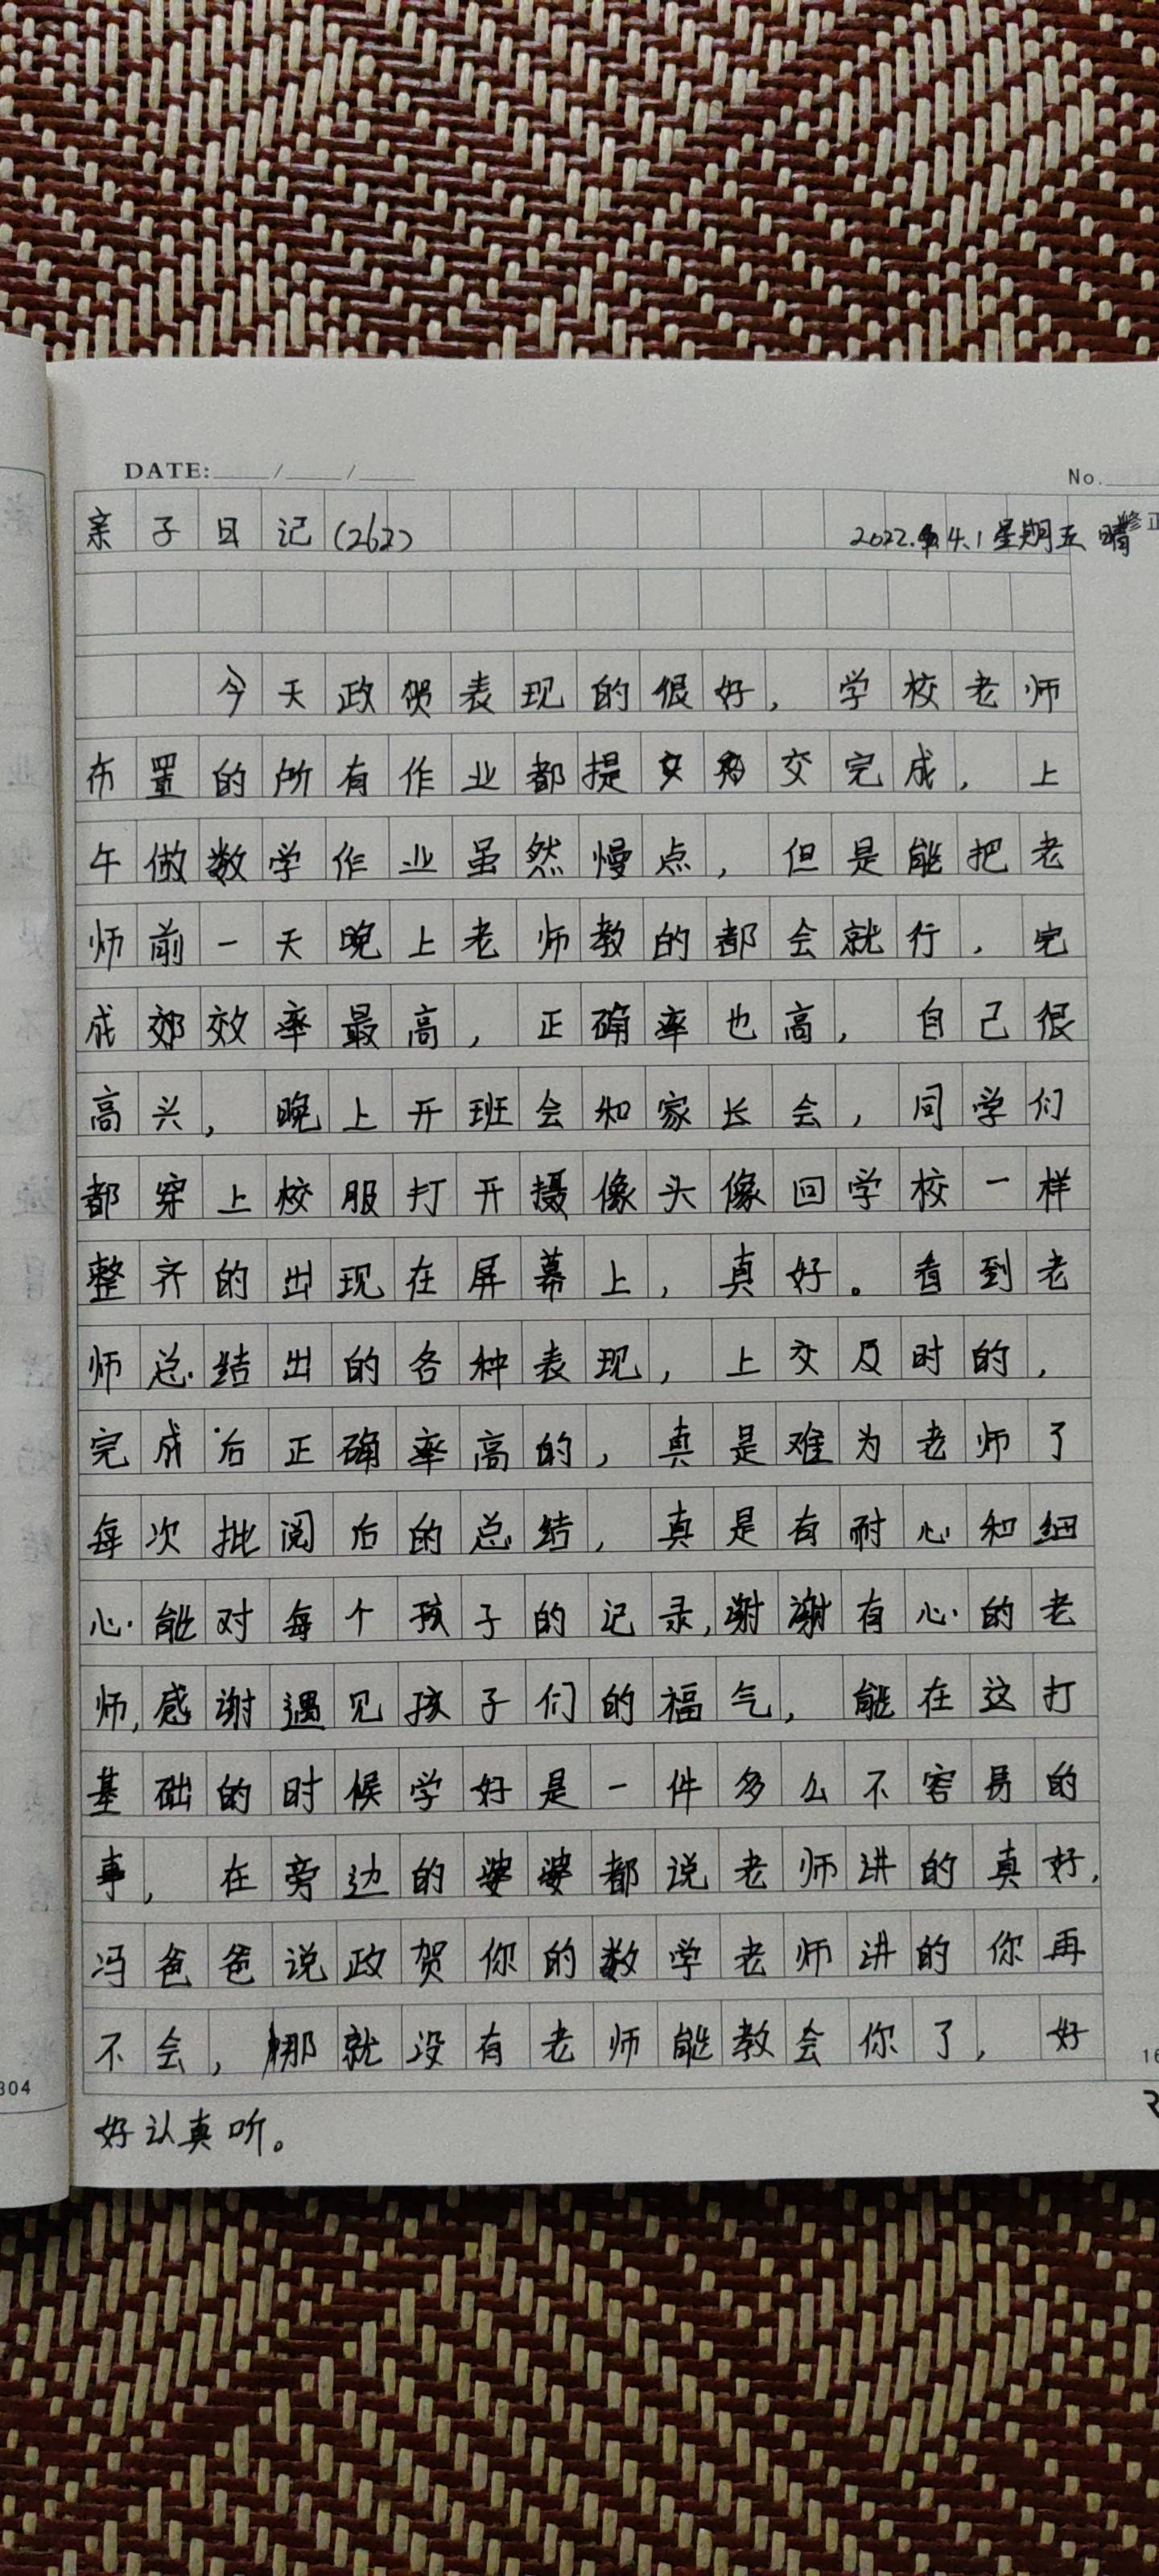 DATE: / /
No.
亲子日记(262) 2022.4.1 星期五 晴
修正
今天政贺表现的很好，学校老师
布置的所有作业都提交完成，上
午做数学作业虽然慢点，但是能把老
师前一天晚上老师教的都会就行，完
成效率最高，正确率也高，自己很
高兴，晚上开班会和家长会，同学们
都穿上校服打开摄像头像回学校一样
整齐的出现在屏幕上，真好。看到老
师总结出的各种表现，上交及时的，
完成后正确率高的，真是难为老师了
每次批阅后的总结，真是有耐心和细
心能对每个孩子的记录，谢谢有心的老
师，感谢遇见孩子们的福气，能在这打
基础的时候学好是一件多么不容易的
事，在旁边的婆婆都说老师讲的真好，
冯爸爸说政贺你的数学老师讲的你再
不会，那就没有老师能教会你了，好
好认真听。
304
16